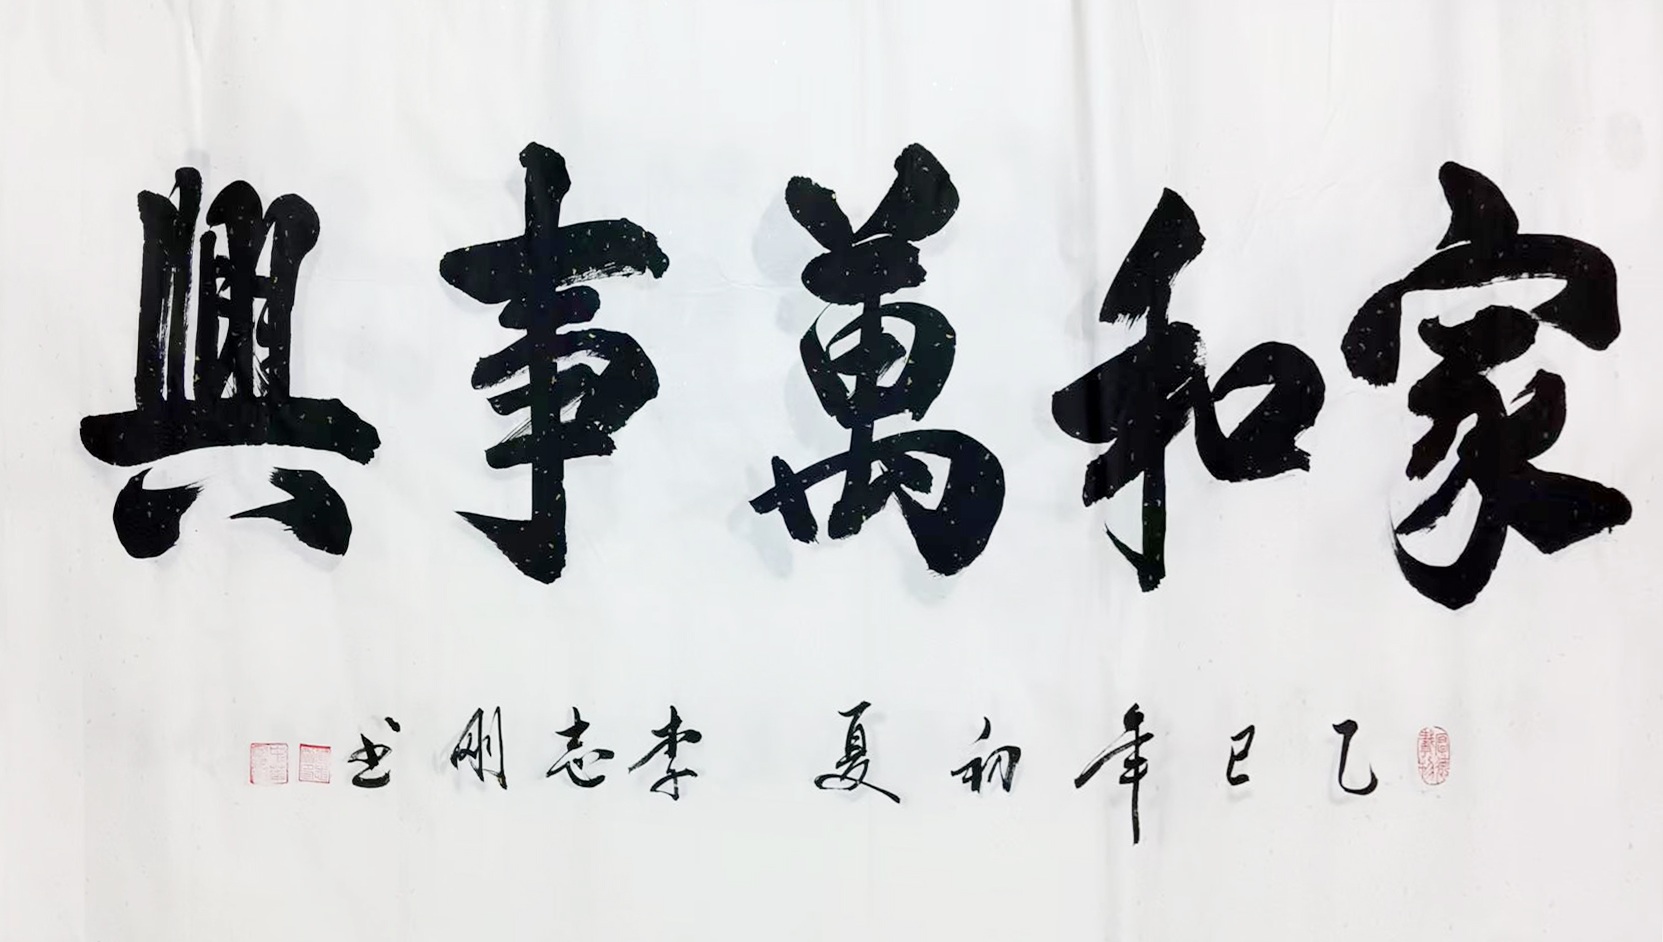 家和萬事興
乙巳年初夏 李志刚书